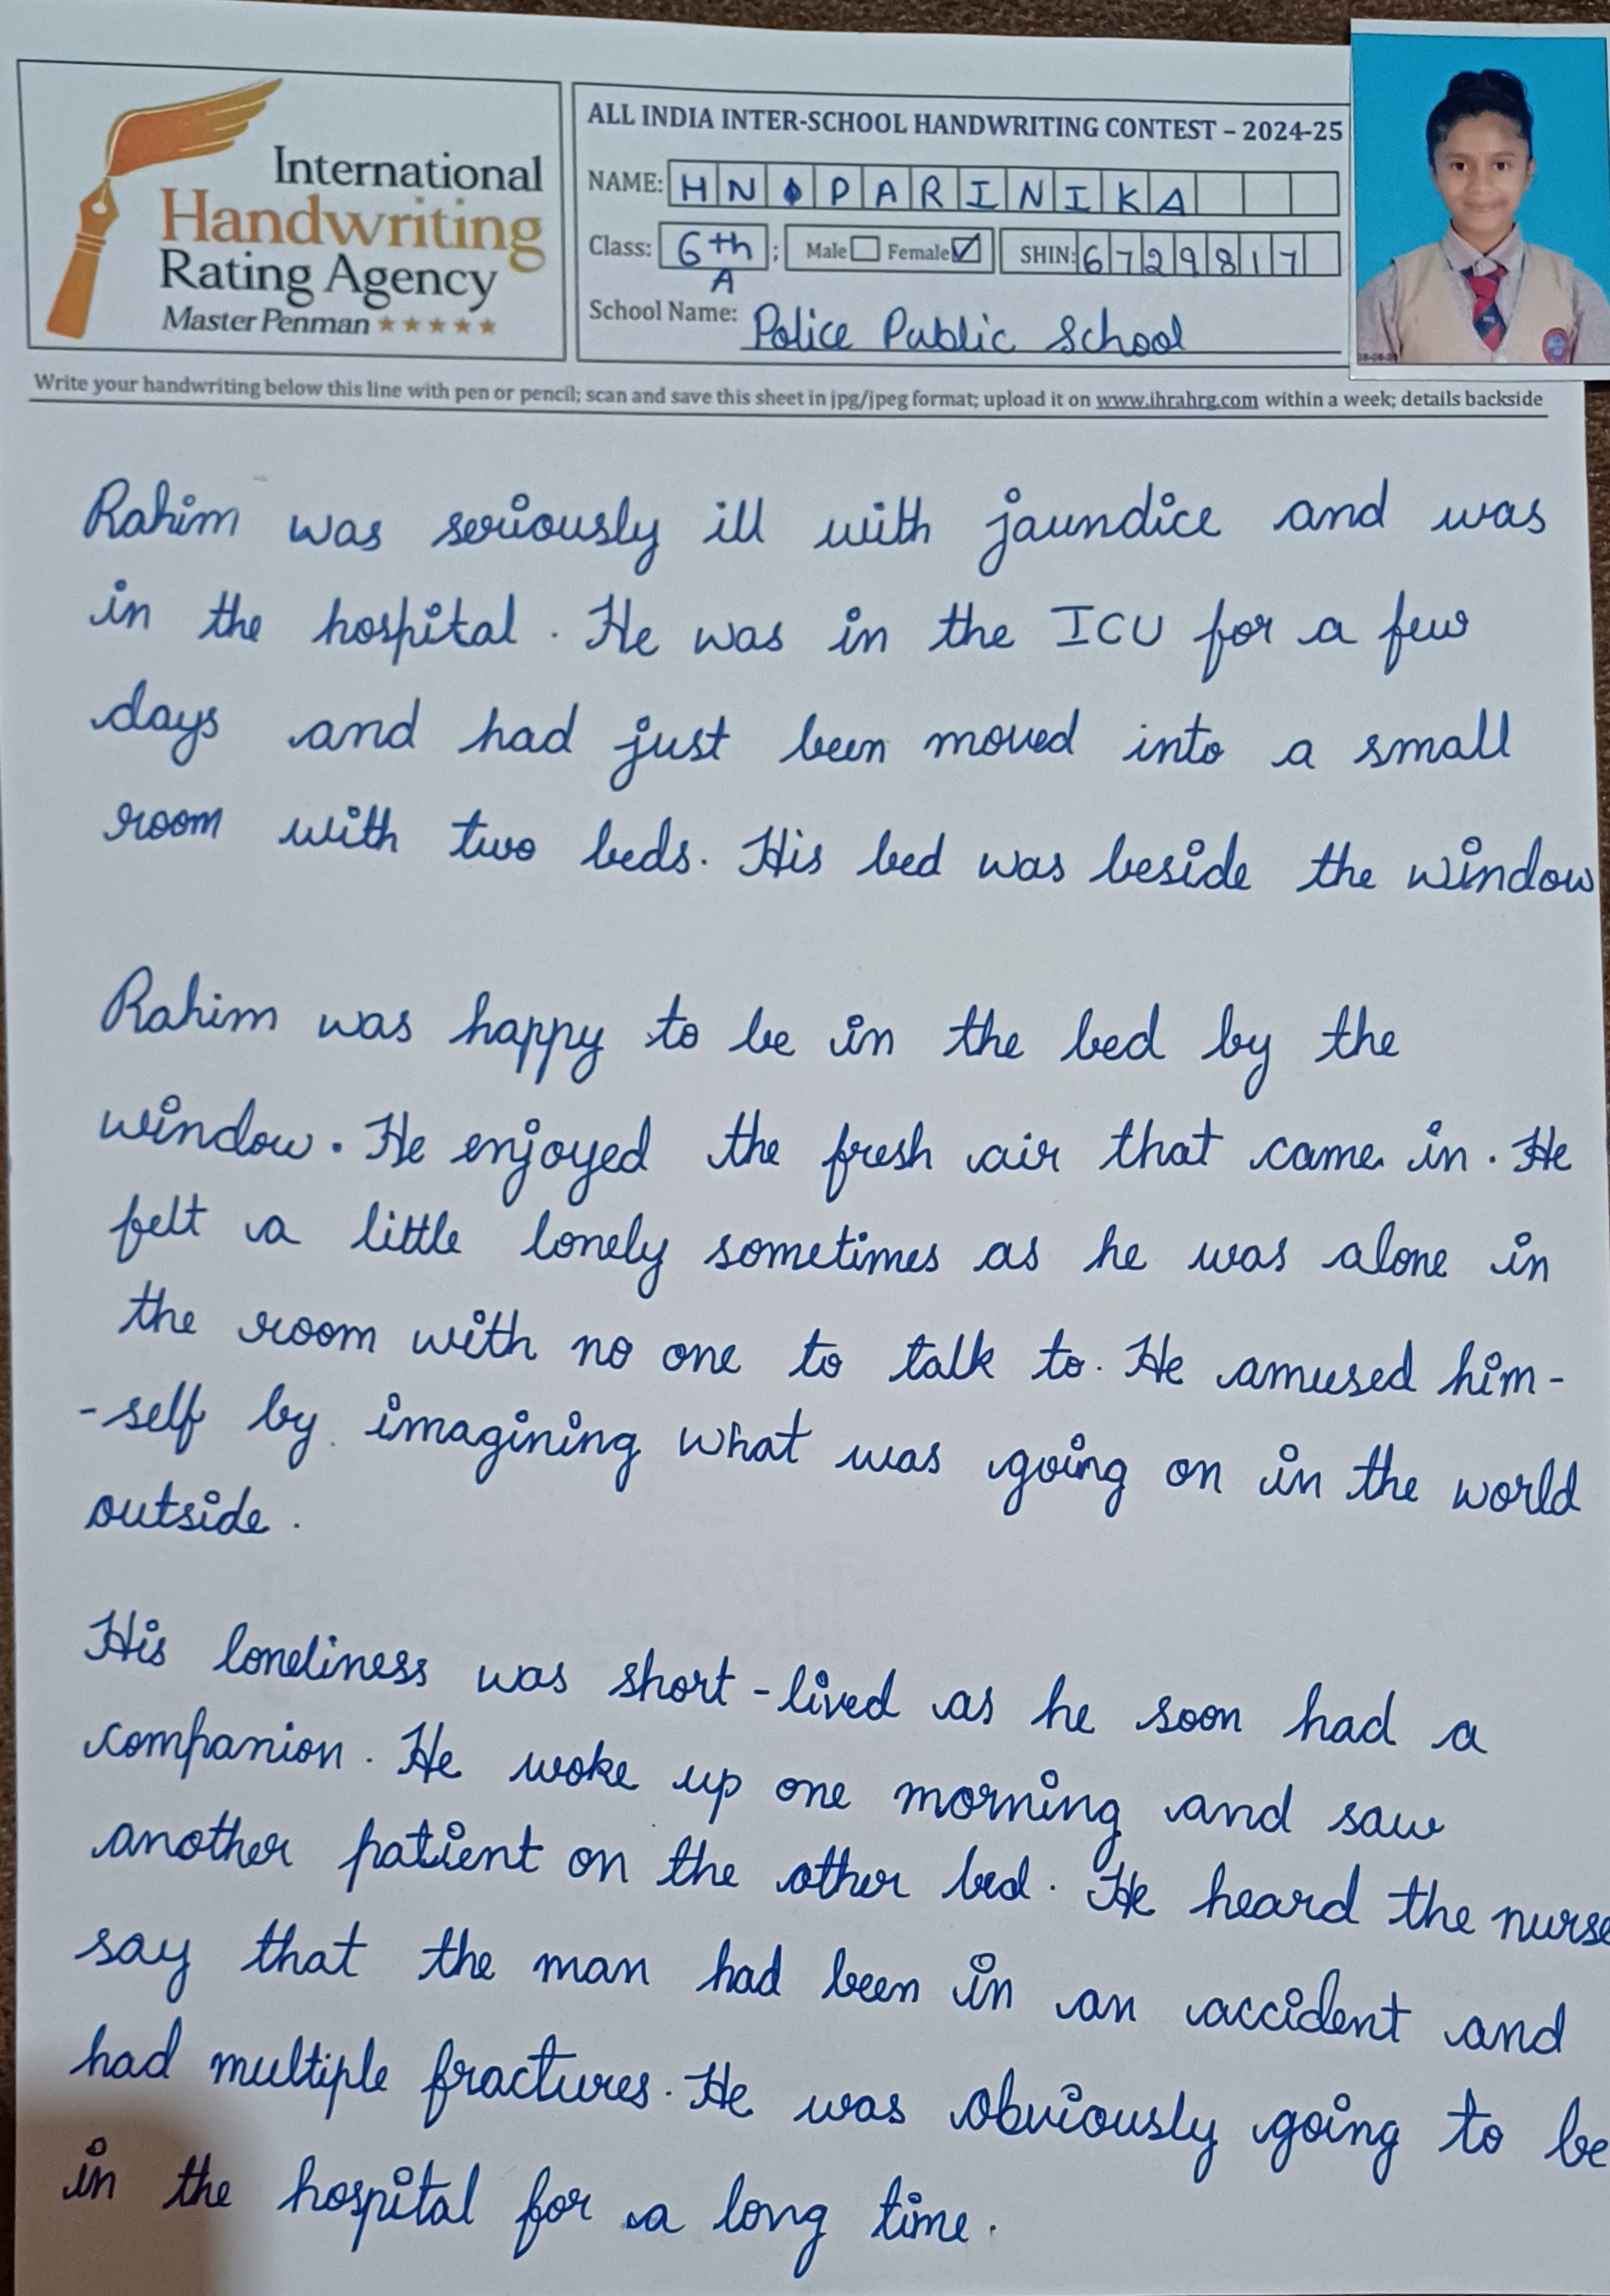 International
Handwriting
Rating Agency
Master Penman
ALL INDIA INTER-SCHOOL HANDWRITING CONTEST – 2024-25
NAME: H N PARINIKA
Class: 6th A ; Male Female ✓ SHIN: 6729817
School Name: Police Public School
Write your handwriting below this line with pen or pencil; scan and save this sheet in jpg/jpeg format; upload it on www.ihrahrg.com within a week; details backside
Rahim was seriously ill with jaundice and was
in the hospital. He was in the ICU for a few
days and had just been moved into a small
room with two beds. His bed was beside the window
Rahim was happy to be in the bed by the
window. He enjoyed the fresh air that came in. He
felt a little lonely sometimes as he was alone in
the room with no one to talk to. He amused him-
-self by imagining what was going on in the world
outside.
His loneliness was short-lived as he soon had a
companion. He woke up one morning and saw
another patient on the other bed. He heard the nurse
say that the man had been in an accident and
had multiple fractures. He was obviously going to be
in the hospital for a long time.